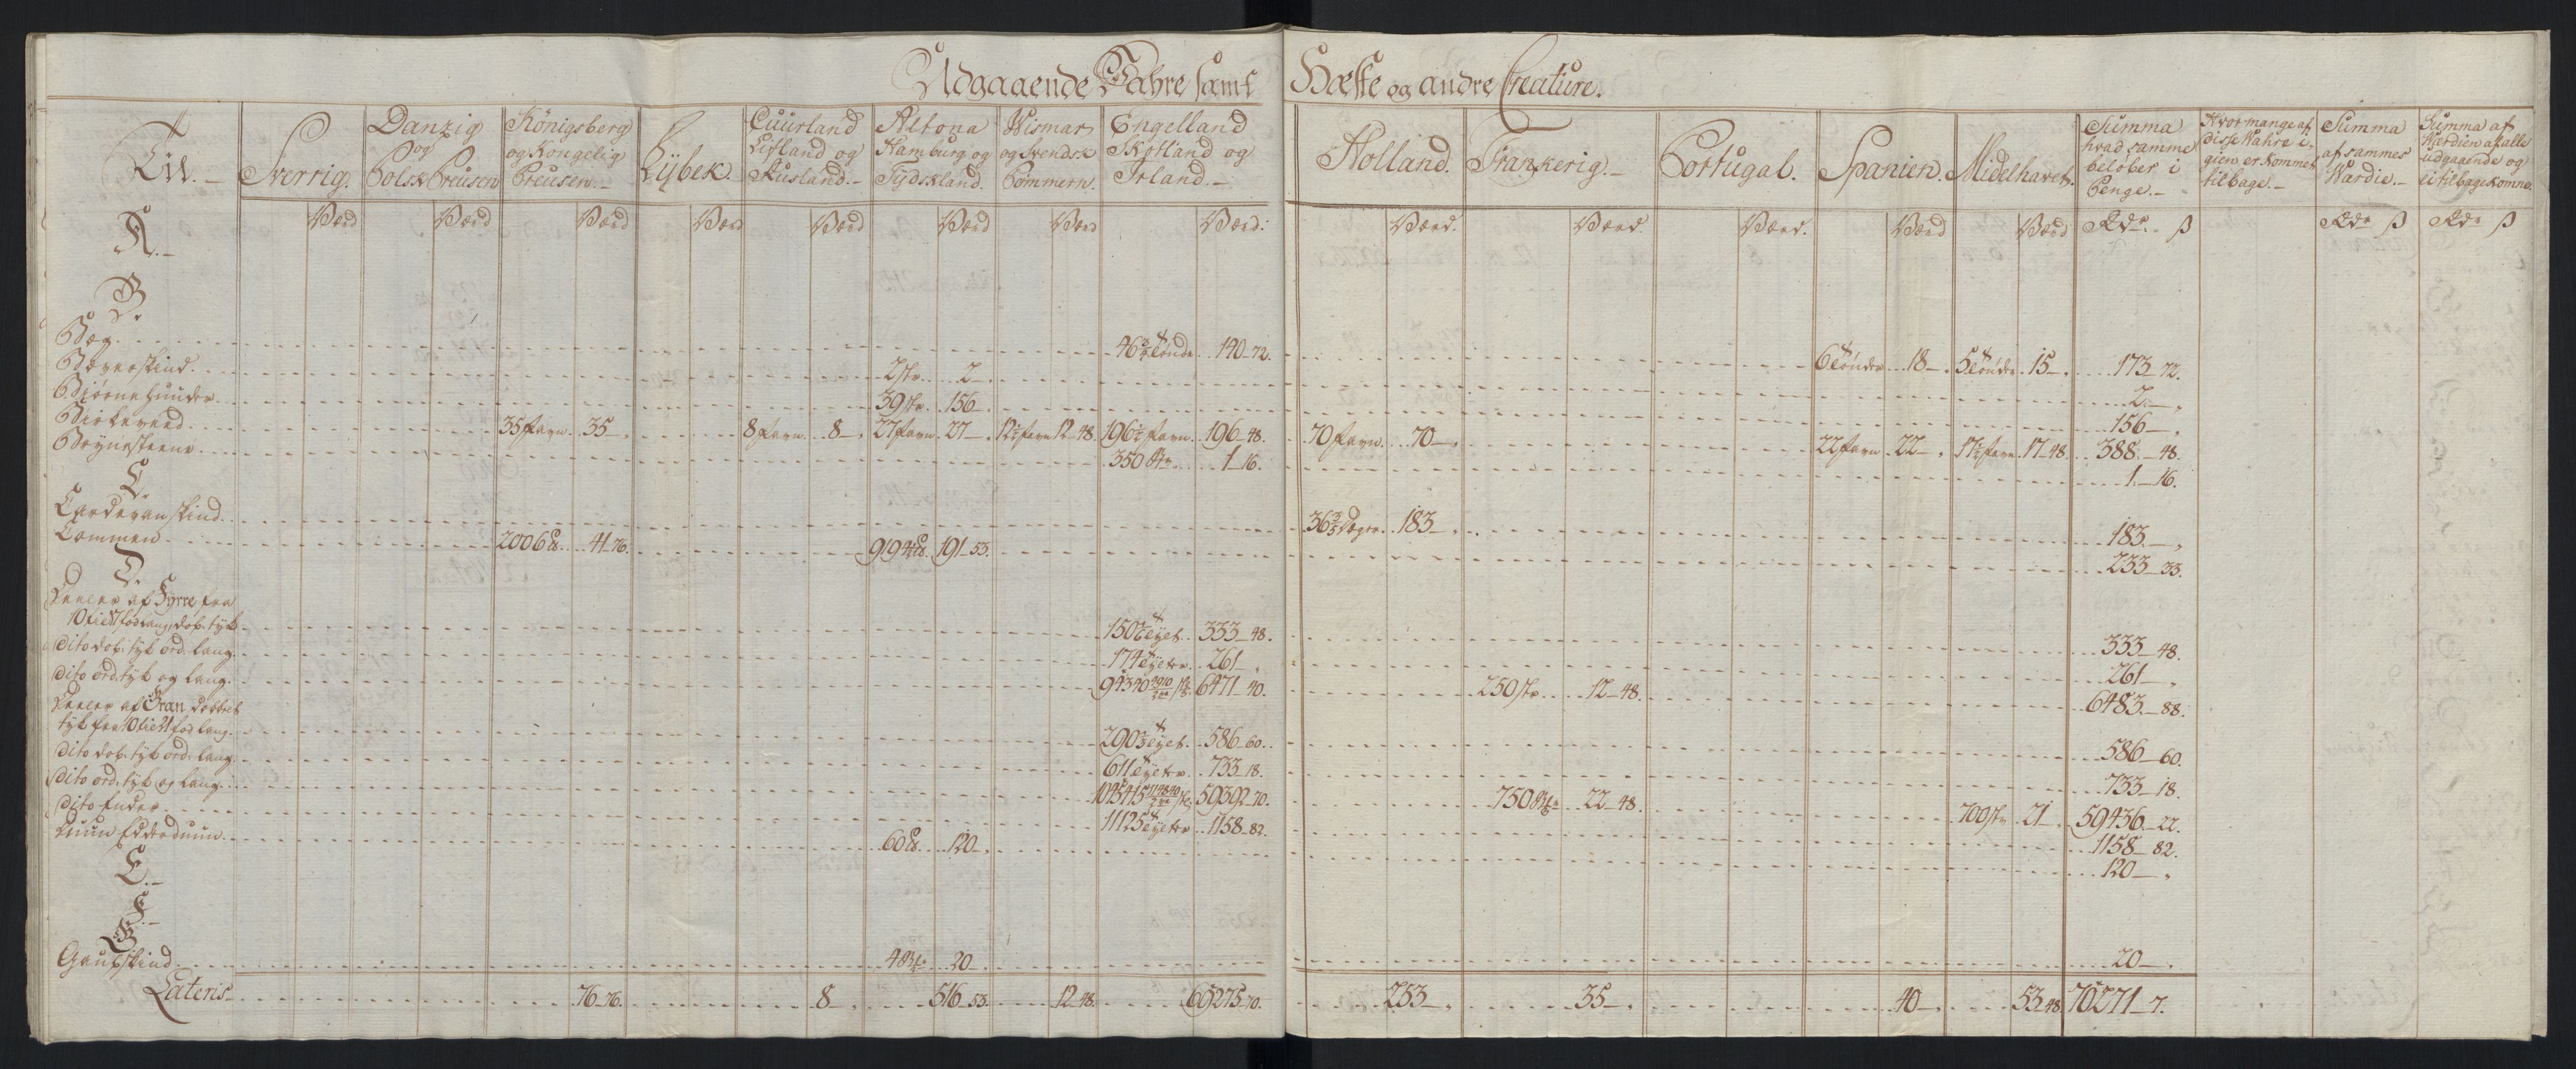 Udgaaende Wahre samt Hæste og andre Creature.
Til.
Sverrig.
Danzig og Polsk Preusen
Königsberg og Kongelig Preusen.
Lÿbek.
Cuurland Lifland og Rusland.
Altona Hamburg og Tÿdskland.
Wismar og Svendsk Pommern.
Engelland Skotland og Irland.
Holland.
Frankerig.
Portugal.
Spanien.
Midelhavet.
Summa hvad samme beløber i Penge.
Hvor mange af disse Wahre igien er kommet tilbage.
Summa af sammes Wærdie.
Summa af Værdien af alle udgaaende og ei tilbagekomne.
Værd Værd Værd Værd Værd Værd Værd Værd: Værd. Værd Værd. Værd Værd Rdr. ß Rdr ß Rdr ß
A.
B.
Bæg 46 3/4 tønde 140-72. 6 tønder 18-, 5 tønder 15-, 173-72.
Bæverskind 2 str. 2-, 2-,
Biørnehuuder 39 str. 156-, 156-,
Birkeveed 35 favn 35-, 8 favn 8-, 27 favn 27-, 12 1/2 favn 12-48. 196 1/2 favn 196-48. 70 favn 70-, 22 favn 22-, 17 1/2 favn 17-48. 388-48.
Brynesteene 350 1-16. 1-16.
C.
Carduanskind 36 3/5 deger 183-, 183-,
Commen 2006 ℔ 41-76. 9194 ℔ 191-53. 233-33.
D.
Deeler af Fyrre fra
10 til 21 fod lang, dob. tyk 150 tylt 333-48. 333-48.
dito dob. tyk ord. lang. 174 tylter 261-, 261-,
dito ord. tyk og lang. 94340 6471-40. 250 str 12-48. 6483-88.
Deeler af Gran dobbelt
tyk fra 10 til 21 fod lang. 290 tylt 586-60. 586-60.
dito dob. tyk ord. lang. 611 tylter 733-18. 733-18.
dito ord. tyk og lang. 1045415 59392-70. 750 22-48. 700 str 21-, 59436-22.
dito Ender 11125 tylter 1158-82. 1158-82.
Duun Edderduun 60 ℔ 120-, 120-,
E.
F.
G.
Gaupskind 4 20-, 20-,
Lateris 76-76. 8-, 516-53. 12-48. 65275-70. 253-, 35-, 40-, 53-48. 70271-7.